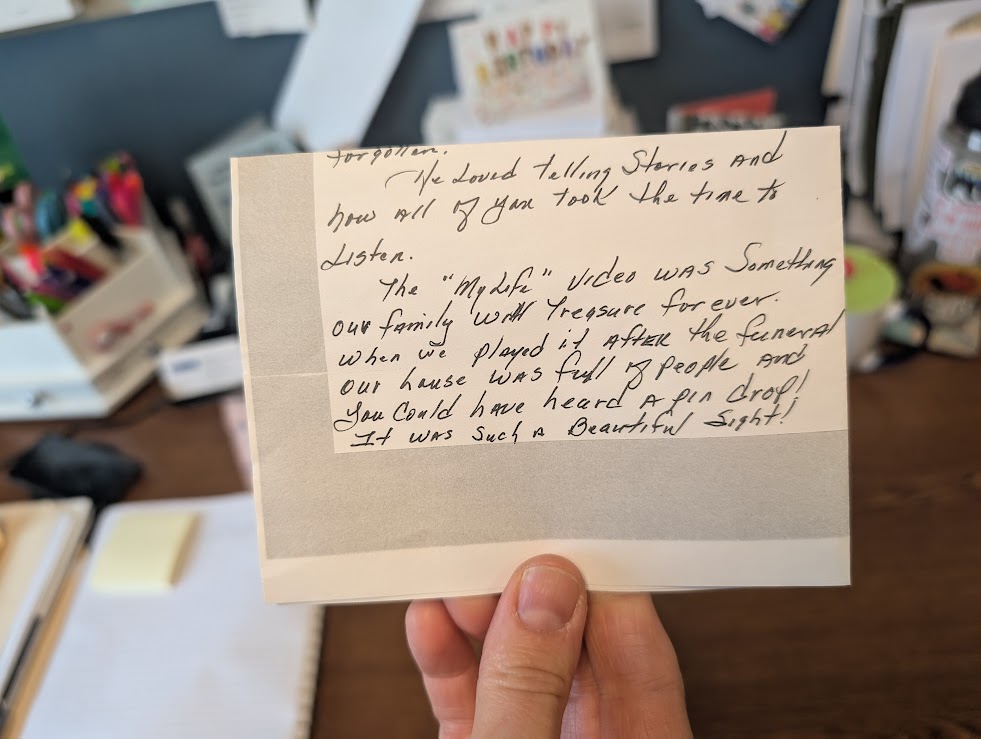 forgotten.
He Loved telling Stories and
how all of you took the time to
Listen.
The "My Life" video was Something
our family will Treasure forever.
when we played it AFTER the funeral
our house was full of people and
you could have heard a pin drop!
It was such a Beautiful Sight!